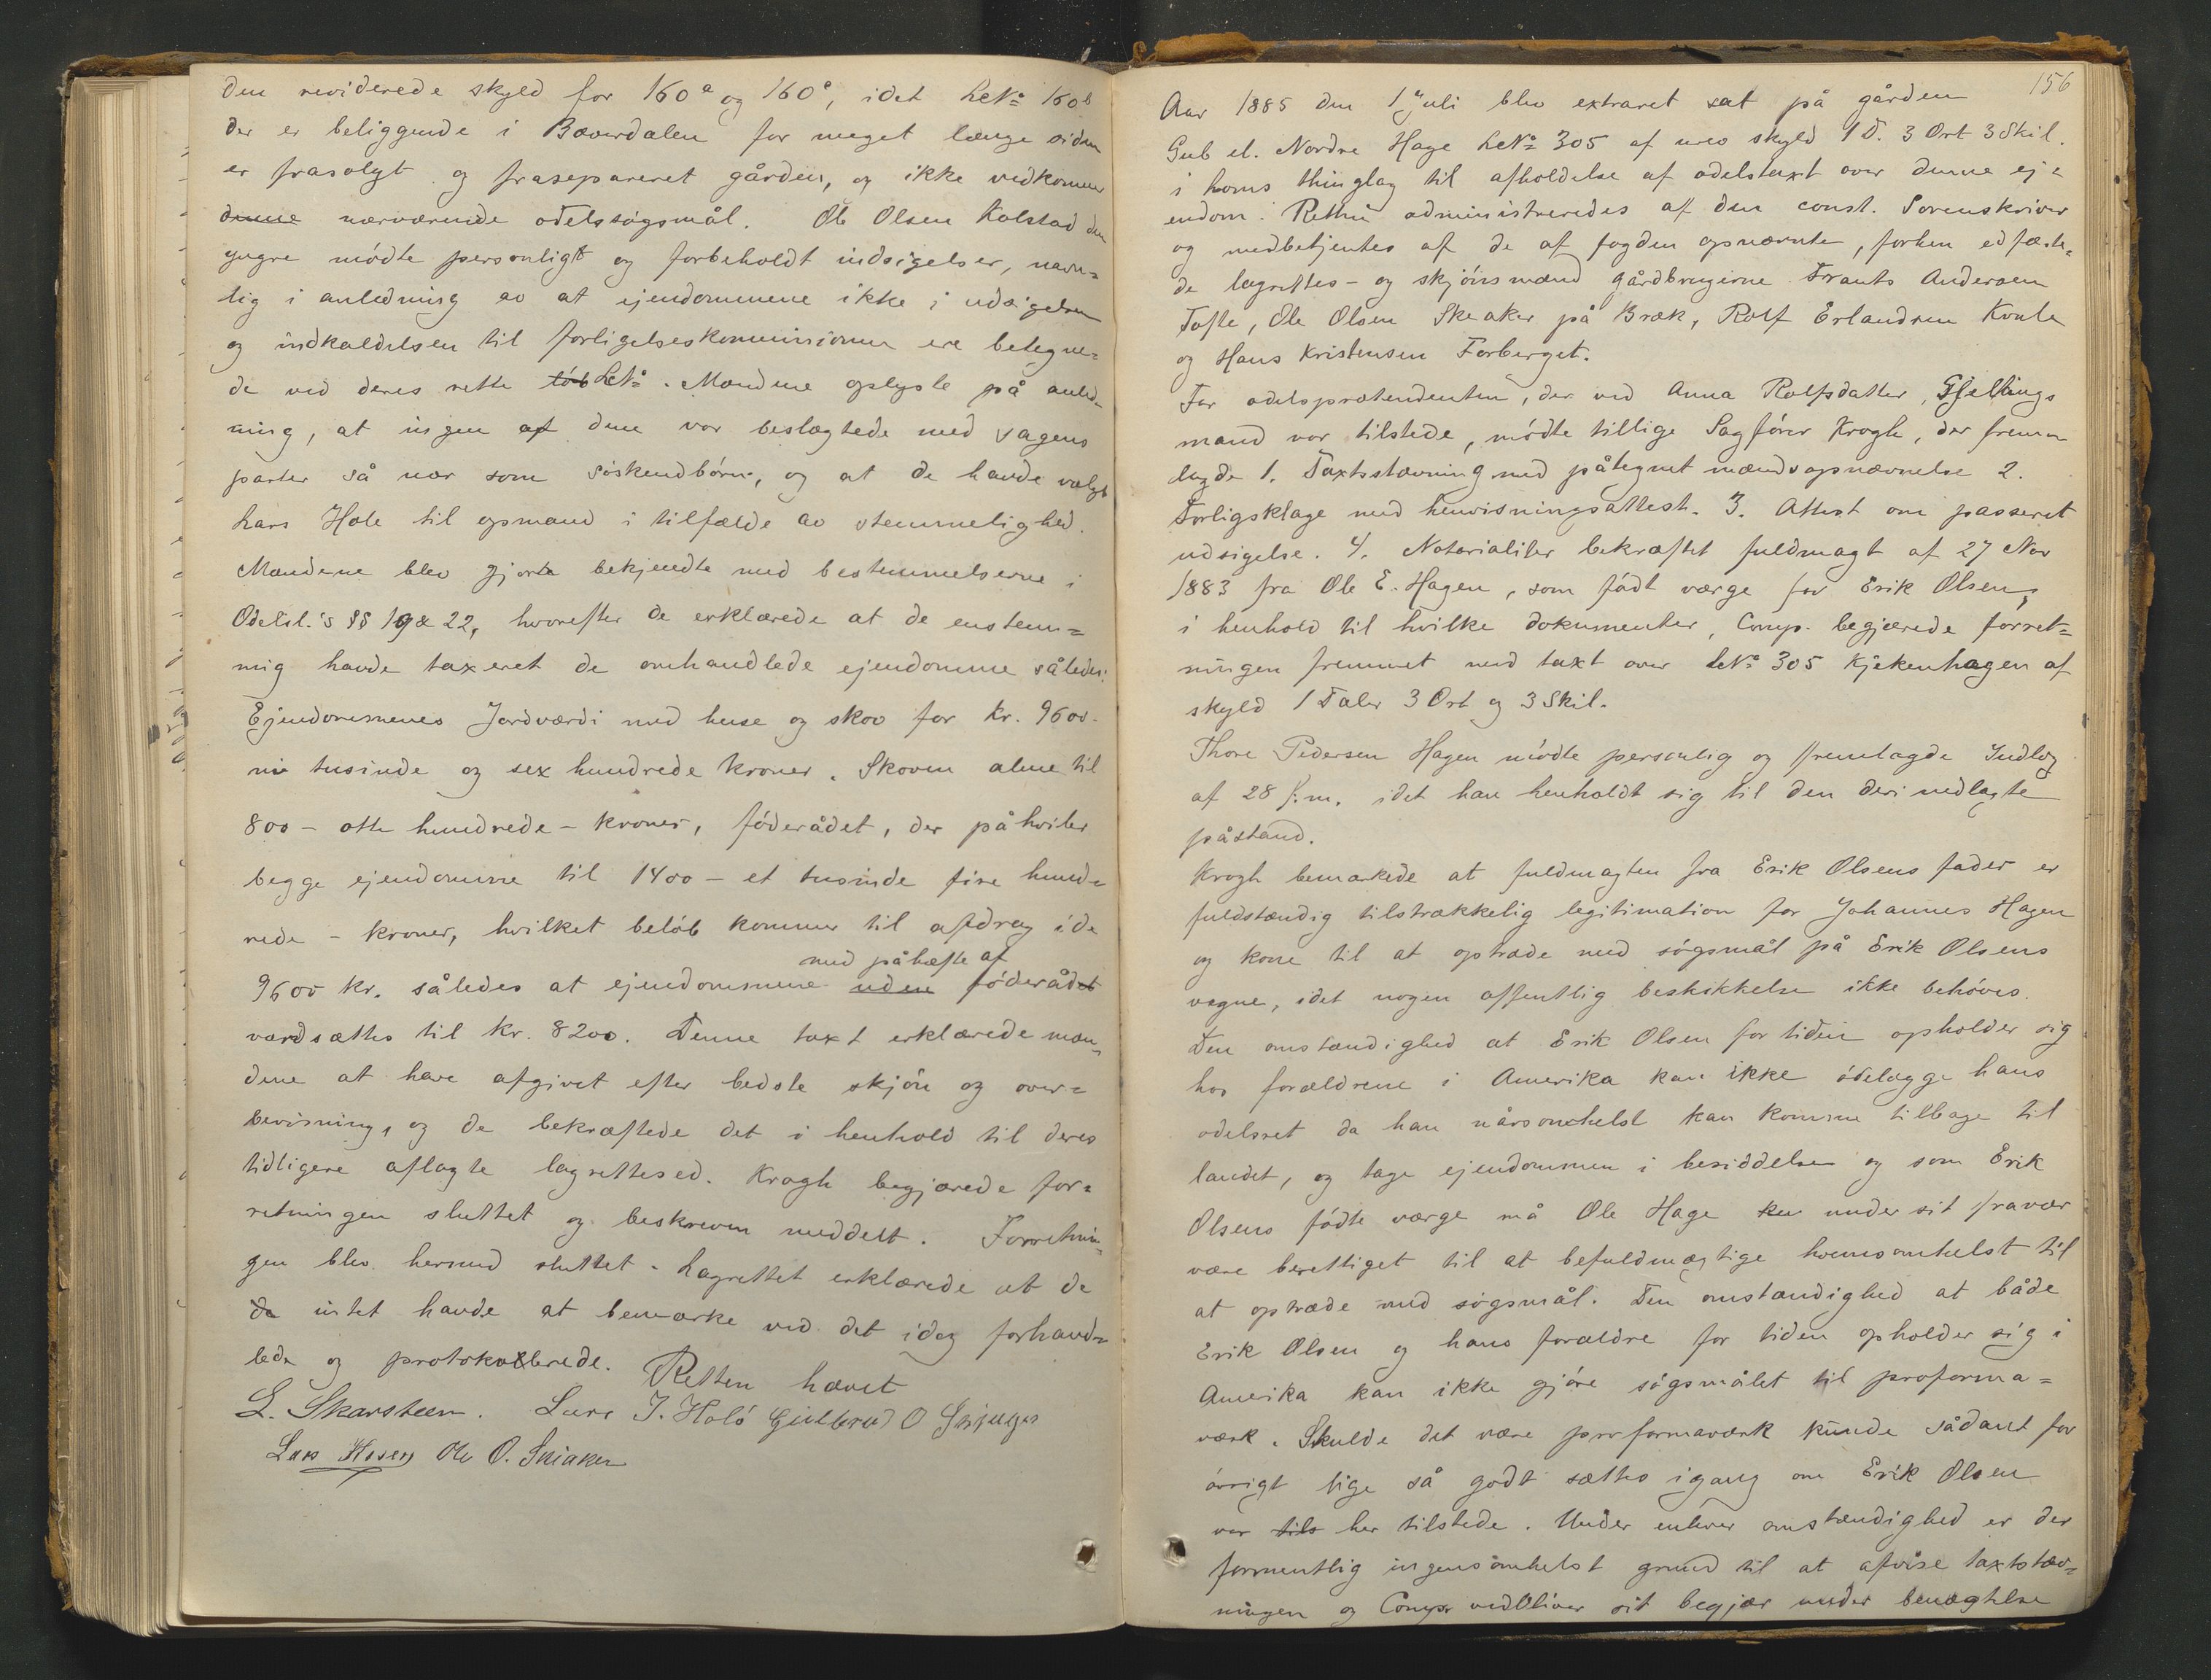 den reviderede skyld for 160a og 160c, idet LNo 160b
der er beliggende i Bæverdalen for meget længe siden
er frasolgt og frasepareret gården, og ikke vedkommer
denne nærværende odelssøgsmål. Ole Olsen Kolstad den
yngre mødte personligt og forbeholdt indsigelser, navn=
lig i anledning av at ejendommene ikke i udsigelsen
og indkaldelsen til forligelseskommissionen ere betegne=
de ved deres rette løb LNo. Mændene oplyste på anled=
ning, at ingen af dem var beslægtede med sagens
parter så nær som søskendbørn, og at de havde valgt
Lars Hole til opmand i tilfælde av stemmelighed.
Mændene blev gjorte bekjendte med bestemmelserne i
Odelsl.'s §§ 19 & 22, hvorefter de erklærede at de enstem=
mig havde taxeret de omhandlede ejendomme således:
Ejendommenes Jordværdi med huse og skov for kr. 9600-
ni tusinde og sex hundrede kroner. Skoven alene til
800 - otte hundrede - kroner, føderådet, der påhviler
begge ejendomme til 1400 - et tusinde fire hund=
rede - kroner, hvilket beløb kommer til afdrag i de
med påhæfte af
9600 kr. således at ejendommene uden føderådet
værdsættes til kr. 8200. Denne taxt erklærede mæn=
dene at have afgivet efter bedste skjøn og over=
bevisning, og de bekræftede det i henhold til deres
tidligere aflagte lagrettesed. Krogh begjærede for=
retningen sluttet og beskreven meddelt. Forretnin=
gen blev hermed sluttet. Lagrettet erklærede at de
da intet havde at bemærke ved det idag forhand=
lede og protokollerede. Retten hævet
L. Skarsteen. Lars J. Holø Gulbrand O
Lars Ole O. Skiaker
156
Aar 1885 den 1 Juli blev extraret sat på gården
Gub el. Nordre Hage LNo 305 af urev skyld 1 D. 3 Ort 3 Skil.
i Loms thinglag til afholdelse af odelstaxt over denne ej=
endom. Retten administreredes af den const. Sorenskriver
og medbetjentes af de af fogden opnævnte, forhen edfæste=
de lagrettes- og skjønsmænd gårdbrugerne Frants Andersen
Tofte, Ole Olsen Skeaker på Bræk, Rolf Erlandsen Kvale
og Hans Kristensen Forberget.
For odelsprætendenten, der ved Anna Rolfsdatter, Gjellings
mand var tilstede, mødte tillige Sagfører Krogh, der frem=
lagde 1. Taxtstævning med påtegnet mændsopnævnelse 2.
Forligsklage med henvisningsattest. 3. Attest om passeret
udsigelse. 4. Notarialiter bekræftet fuldmagt af 27 Nov
1883 fra Ole E. Hagen, som født værge for Erik Olsen,
i henhold til hvilke dokumenter, Comp. begjærede forret=
ningen fremmet med taxt over LNo 305 Kjekenhagen af
skyld 1 Daler 3 Ort og 3 Skil.
Thore Pedersen Hagen mødte personlig og fremlagde Indlæg
af 28 f.m. idet han henholdt sig til den deri nedlagte
påstand.
Krogh bemærkede at fuldmagten fra Erik Olsens fader er
fuldstændig tilstrækkelig legitimation for Johannes Hagen
og kone til at optræde med søgsmål på Erik Olsens
vegne, idet nogen offentlig beskikkelse ikke behøves.
Den omstændighed at Erik Olsen for tiden opholder sig
hos forældrene i Amerika kan ikke ødelægge hans
odelsret da han nårsomhelst kan komme tilbage til
landet, og tage ejendommen i besiddelse og som Erik
Olsens fødte værge må Ole Hage ku under sit fravær
være berettiget til at befuldmægtige hvemsomhelst til
at optræde med søgsmål. Den omstændighed at både
Erik Olsen og hans forældre for tiden opholder sig i
Amerika kan ikke gjøre søgsmålet til proforma=
værk. Skulde det være proformaværk kunde sådant for
øvrigt lige så godt sættes igang om Erik Olsen
var tils her tilstede. Under enhver omstændighed er der
formentlig ingensomhelst grund til at afvise taxtstæv=
ningen og Comp. vedbliver sit begjær under benægtelse